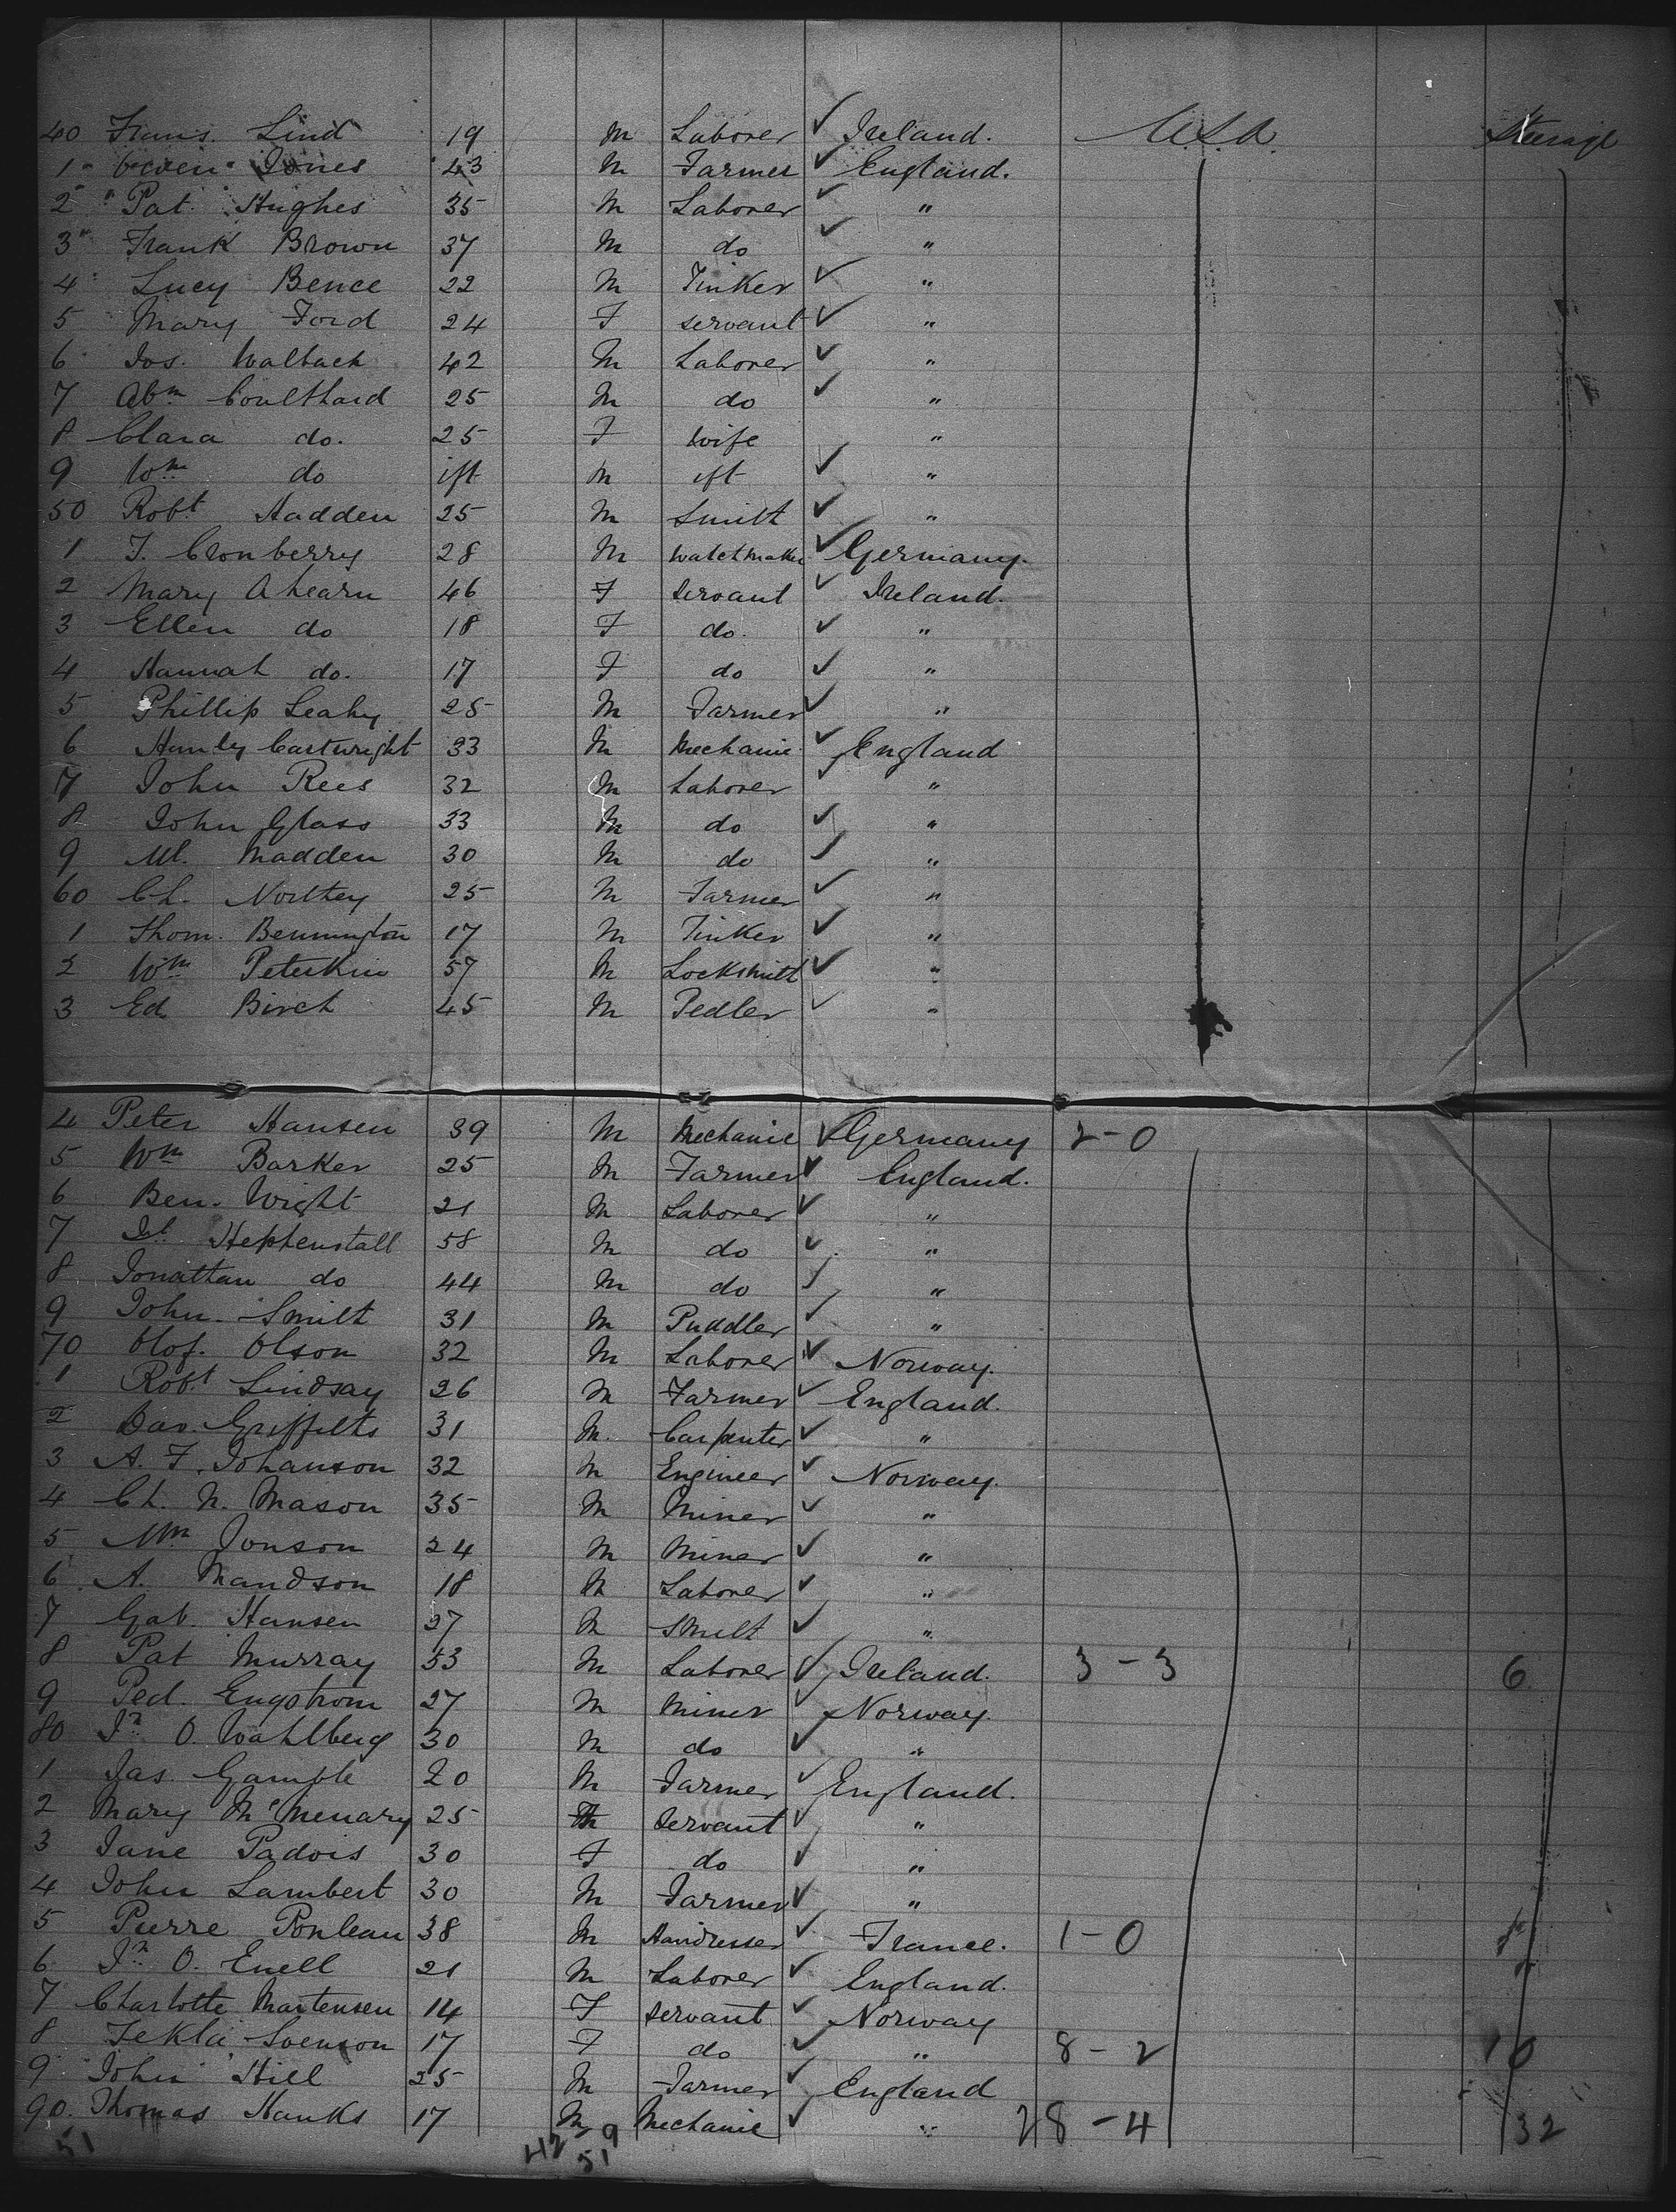 40 Frans. Lind 19 M Laborer ✓ Ireland. U.S.A. Steerage
1 " Owen Jones 43 M Farmer ✓ England.
2 " Pat. Hughes 35 M Laborer ✓ "
3 " Frank Brown 37 M do ✓ "
4 " Lucy Bence 22 M Tinker ✓ "
5 Mary Ford 24 F servant ✓ "
6 Jos. Walbach 42 M Laborer ✓ "
7 Abm Coulthard 25 M do ✓ "
8 Clara do. 25 F wife "
9 Wm do ift M ift ✓ "
50 Robt Hadden 25 M Smith ✓ "
1 J. Cronberry 28 M watchmaker ✓ Germany.
2 Mary Ahearn 46 F servant ✓ Ireland.
3 Ellen do 18 F do. ✓ "
4 Hannah do. 17 F do ✓ "
5 Phillip Leahy 25 M Farmer ✓ "
6 Cartwright 33 M Mechanic ✓ England
7 John Rees 32 M Laborer ✓ "
8 John Glass 33 M do ✓ "
9 Ml. Madden 30 M do ✓ "
60 Ch. Northey 25 M Farmer ✓ "
1 Thom. Bennington 17 M Tinker ✓ "
2 Wm Peterkin 57 M Locksmith ✓ "
3 Ed. Birch 45 M Pedler ✓ "
4 Peter Hansen 39 M Mechanic ✓ Germany 2-0
5 Wm Barker 25 M Farmer ✓ England.
6 Ben. Wight 21 M Laborer ✓ "
7 Hephenstall 58 M do ✓ "
8 Jonathan do 44 M do ✓ "
9 John Smith 31 M Puddler ✓ "
70 Olof. Olson 32 M Laborer ✓ Norway.
1 Robt Lindsay 26 M Farmer ✓ England.
2 Dav. Griffiths 31 M. Carpenter ✓ "
3 A. F. Johanson 32 M Engineer ✓ Norway.
4 Ch. N. Mason 35 M Miner ✓ "
5 Jonson 24 M Miner ✓ "
6 A. Mandson 18 M Laborer ✓ "
7 Gab. Hansen 27 M Smith ✓ "
8 Pat Murray 53 M Laborer ✓ Ireland. 3-3 6
9 Ped. Engstrom 27 M Miner ✓ Norway.
80 Jn O. Wahlberg 30 M do ✓ "
1 Jas. Gample 20 M Farmer ✓ England.
2 Mary McMenary 25 F Servant ✓ "
3 Jane Padois 30 F do ✓ "
4 John Lambert 30 M Farmer ✓ "
5 Pierre Ponleau 38 M Hairdresser ✓ France. 1-0
6 Jn O. Enell 21 M Laborer ✓ England.
7 Charlotte Martensen 14 F servant ✓ Norway
8 Tekla Svenson 17 F do ✓ " 8-2 10
9 John Hill 25 M Farmer ✓ England
90. Thomas Hanks 17 M Mechanic ✓ " 28-4 32
51 42 9
51